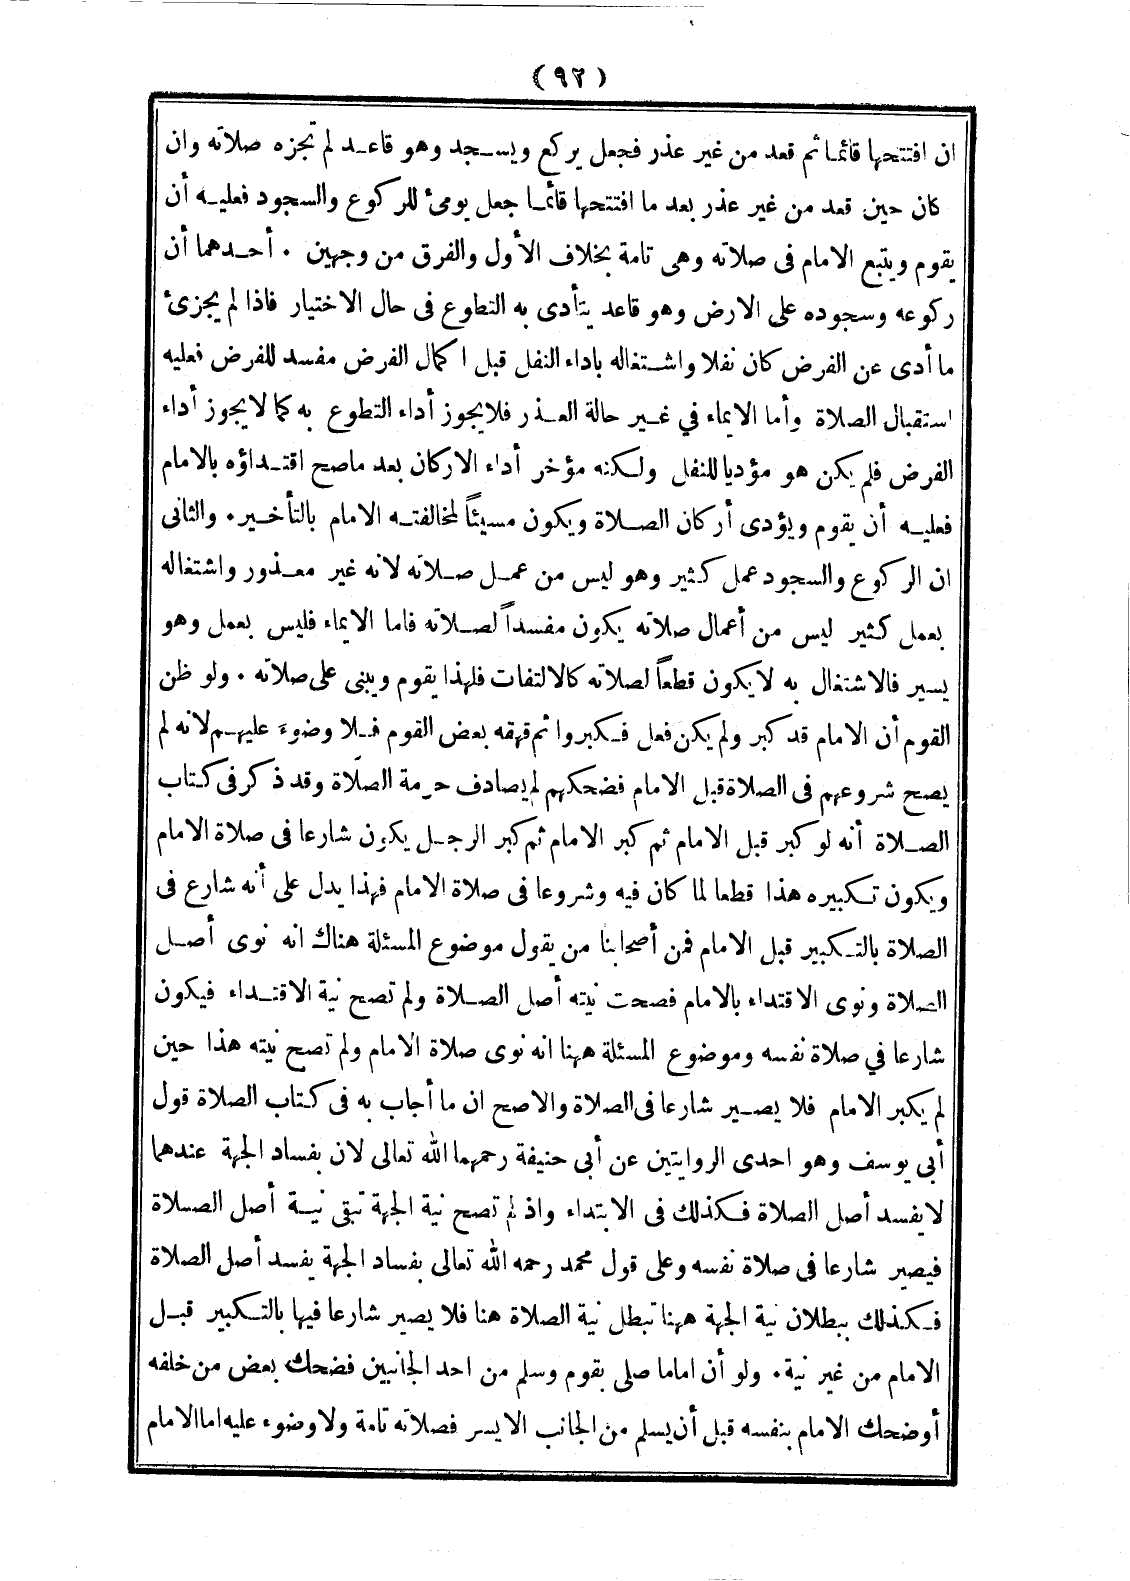 (٩٢)
ان افتتحها قائما ثم قعد من غير عذر فجعل يركع ويسجد وهو قاعد لم تجزه صلاته وان
كان حين قعد من غير عذر بعد ما افتتحها قائما جعل يومئ للركوع والسجود فعليه أن
يقوم ويتبع الامام فى صلاته وهى تامة بخلاف الأول والفرق من وجهين . أحدهما أن
ركوعه وسجوده على الارض وهو قاعد يتأدى به التطوع فى حال الاختيار فاذا لم يجزئ
ما أدى عن الفرض كان نفلا واشتغاله باداء النفل قبل اكمال الفرض مفسد للفرض فعليه
استقبال الصلاة وأما الايماء في غير حالة العذر فلايجوز أداء التطوع به كما لايجوز أداء
الفرض فلم يكن هو مؤديا للنفل ولكنه مؤخر أداء الاركان بعد ماصح اقتداؤه بالامام
فعليه أن يقوم ويؤدى أركان الصلاة ويكون مسيئاً لمخالفته الامام بالتأخير. والثانى
ان الركوع والسجود عمل كثير وهو ليس من عمل صلاته لانه غير معذور واشتغاله
بعمل كثير ليس من أعمال صلاته يكون مفسداً لصلاته فاما الايماء فليس بعمل وهو
يسير فالاشتغال به لايكون قطعاً لصلاته كالالتفات فلهذا يقوم ويبنى على صلاته . ولو ظن
القوم أن الامام قد كبر ولم يكن فعل فكبروا ثم قهقه بعض القوم فلا وضوء عليهم لانه لم
يصح شروعهم فى الصلاة قبل الامام فضحكهم لم يصادف حرمة الصلاة وقد ذكر فى كتاب
الصلاة أنه لو كبر قبل الامام ثم كبر الامام ثم كبر الرجل يكون شارعا فى صلاة الامام
ويكون تكبيره هذا قطعا لما كان فيه وشروعا فى صلاة الامام فهذا يدل على أنه شارع فى
الصلاة بالتكبير قبل الامام فمن أصحابنا من يقول موضوع المسئلة هناك انه نوى أصل
الصلاة ونوى الاقتداء بالامام فصحت نيته أصل الصلاة ولم تصح نية الاقتداء فيكون
شارعا في صلاة نفسه وموضوع المسئلة ههنا انه نوى صلاة الامام ولم تصح نيته هذا حين
لم يكبر الامام فلا يصير شارعا فى الصلاة والاصح ان ما أجاب به فى كتاب الصلاة قول
أبى يوسف وهو احدى الروايتين عن أبى حنيفة رحمهما الله تعالى لان بفساد الجهة عندهما
لايفسد أصل الصلاة فكذلك فى الابتداء واذ لم تصح نية الجهة تبقى نية أصل الصلاة
فيصير شارعا فى صلاة نفسه وعلى قول محمد رحمه الله تعالى بفساد الجهة يفسد أصل الصلاة
فكذلك ببطلان نية الجهة ههنا تبطل نية الصلاة هنا فلا يصير شارعا فيها بالتكبير قبل
الامام من غير نية. ولو أن اماما صلى بقوم وسلم من احد الجانبين فضحك بعض من خلفه
أوضحك الامام بنفسه قبل أن يسلم من الجانب الايسر فصلاته تامة ولاوضوء عليه اما الامام